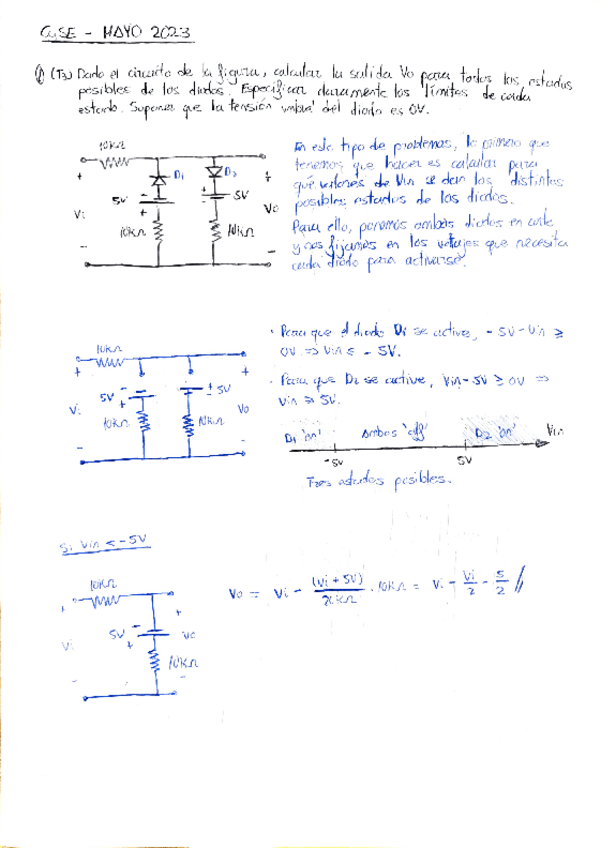 CUSE - MAYO 2023
(T3) Dado el circuito de la figura, calcular la salida Vo para todos los estados
posibles de los diodos. Especificar claramente los límites de cada
estado. Suponer que la tensión umbral del diodo es 0V.
10KΩ
+ D1 D2 +
5V 5V
Vi Vo
10KΩ 10KΩ
- -
En este tipo de problemas, lo primero que
tenemos que hacer es calcular para
qué valores de Vin se dan los distintos
posibles estados de los diodos.
Para ello, ponemos ambos diodos en corte
y nos fijamos en los voltajes que necesita
cada diodo para activarse.
10KΩ
+ +
5V - + 5V
Vi + - Vo
10KΩ 10KΩ
- -
· Para que el diodo D1 se active, -5V-Vin ≥
0V ⇒ Vin ≤ -5V.
· Para que D2 se active, Vin-5V ≥ 0V ⇒
Vin ≥ 5V.
D1 'on' Ambos 'off' D2 'on' Vin
-5V 5V
Tres estados posibles.
Si Vin < -5V
10KΩ
+ +
5V - Vo
Vi +
10KΩ
- -
Vo = Vi - (Vi + 5V)/20KΩ · 10KΩ = Vi - Vi/2 - 5/2 //